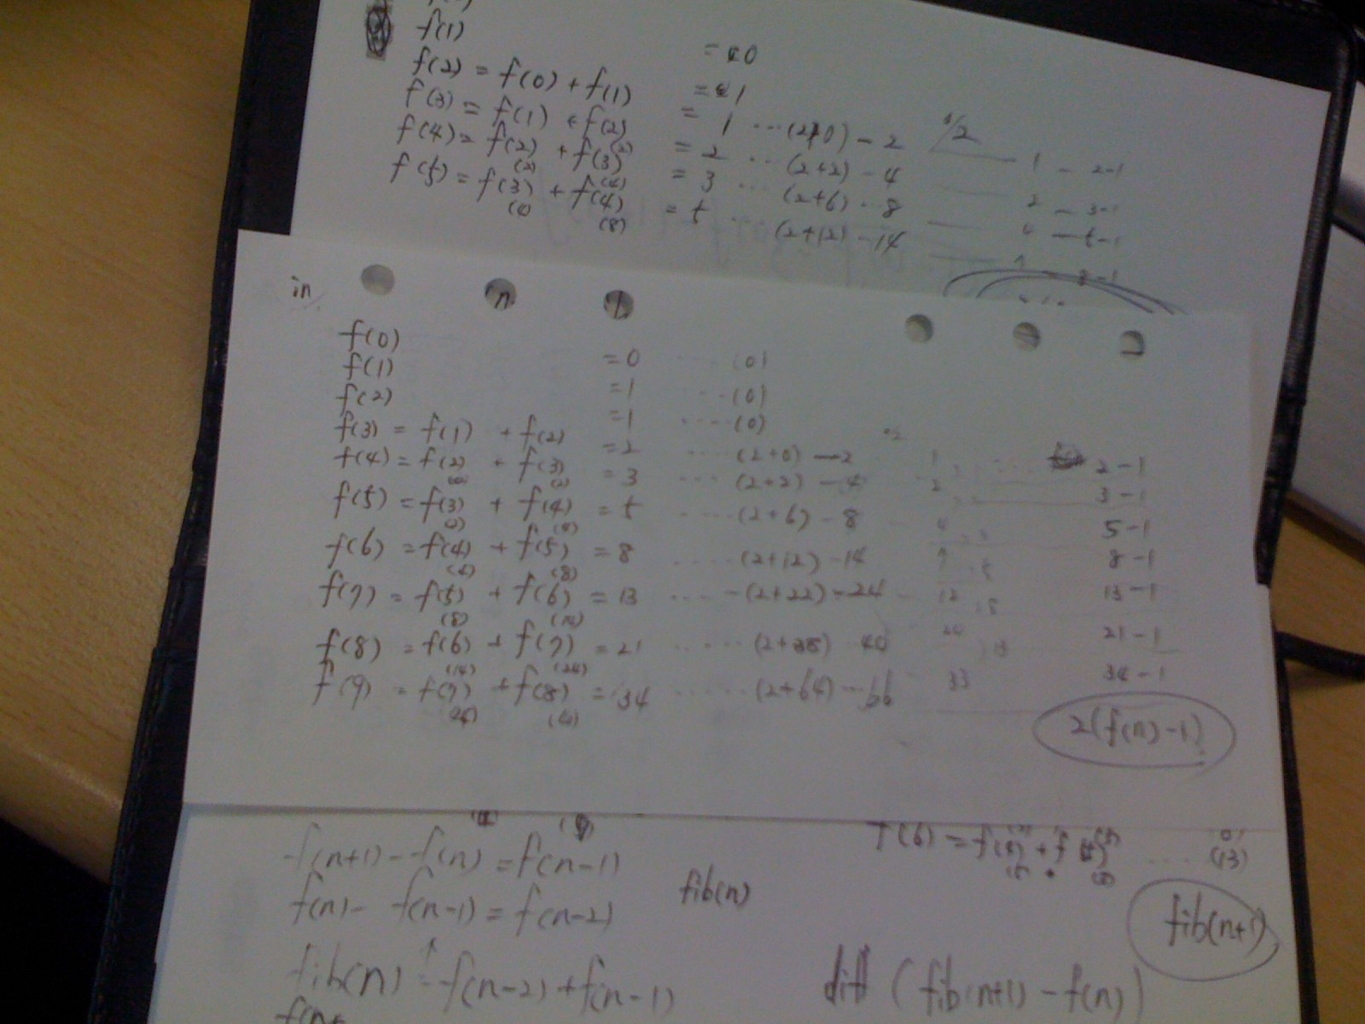 f(1)
= 0
f(2) = f(0) + f(1)
= 1
f(3) = f(1) + f(2) = 1 ... (2+0) - 2 1 - 2-1
(2)
f(4) = f(2) + f(3) = 2 ... (2+2) - 4 2 - 3-1
(2) (4)
f(5) = f(3) + f(4) = 3 ... (2+6) ... 8 4
(4) (8)
= 5 ... (2+12) - 14 7 8-1
in n
f(0) = 0 .... (0)
f(1) = 1 .... (0)
f(2) = 1 .... (0)
f(3) = f(1) + f(2) = 2 .... (2+0) - 2 1 2-1
f(4) = f(2) + f(3) = 3 .... (2+2) - 4 2 3-1
(0) (2)
f(5) = f(3) + f(4) = 5 .... (2+6) - 8 4 5-1
(2) (4)
f(6) = f(4) + f(5) = 8 .... (2+12) - 14 7 8-1
(4) (8)
f(7) = f(5) + f(6) = 13 .... (2+22) - 24 12 13-1
(8) (14)
f(8) = f(6) + f(7) = 21 ..... (2+38) 40 20 21-1
(14) (24)
f(9) = f(7) + f(8) = 34 ...... (2+64) ... 66 33 34-1
(24) (40)
2(f(n)-1)
f(n+1) - f(n) = f(n-1)
f(n) - f(n-1) = f(n-2)
fib(n)
fib(n) = f(n-2) + f(n-1)
f(6) =
(13)
fib(n+1)
diff (fib(n+1) - f(n))